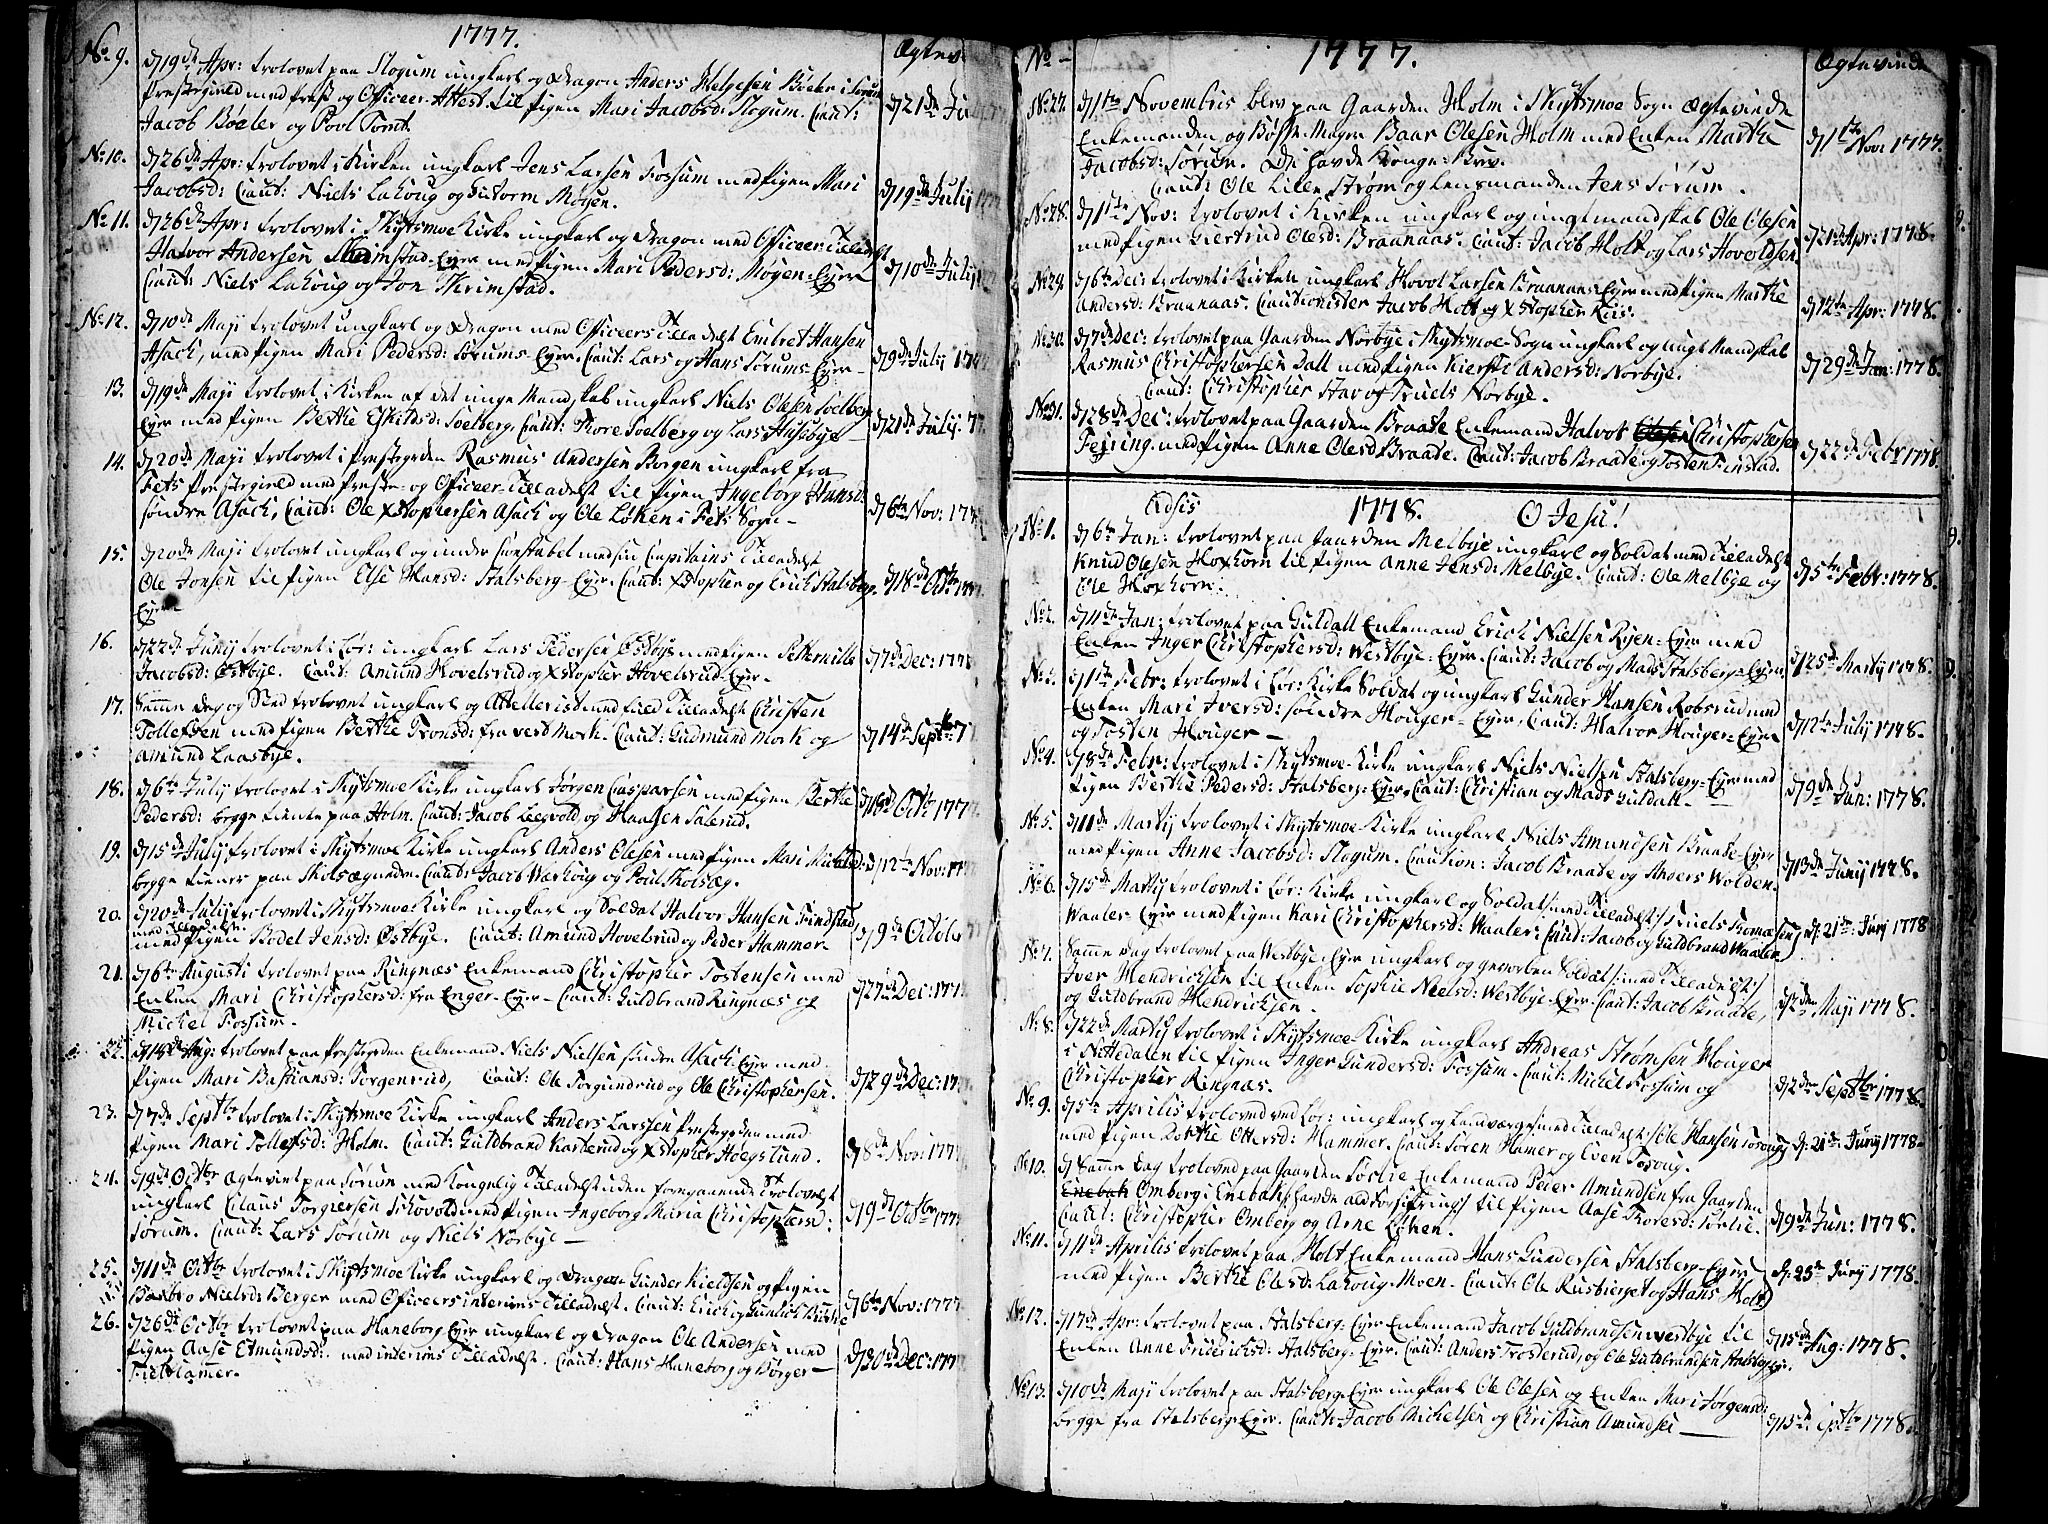 1777.
Ægtev.
No. 9. d 19de Apr: trolovet paa Slogum ungkarl og Dragon Anders Helgesen Bøeler i Sørum
Prestegield med Præst og Officeer-Attest til Pigen Mari Jacobsd: Slogum. Caut:
Jacob Bøeler og Povl Tomt. d 21de Ju
No. 10. d 26de Apr: trolovet i Kirken ungkarl Jens Larsen Fossum med Pigen Mari
Jacobsd: Caut: Niels Lahoug og Gutorm Møyen. d 19de July 177
No. 11. d 26de Apr: trolovet i Skytsmoe Kirke ungkarl og Dragon med Officeer-Tilladelse
Halvor Andersen Skrimstad-Eyer med Pigen Mari Pedersd: Møyen-Eyer
Caut: Niels Lahoug og Jon Skrimstad. d 10de July
No. 12. d 10de Maji trolovet ungkarl og Dragon med Officeers Tilladelse Embret Hansen
Asach, med Pigen Mari Pedersd: Sørums-Eyer. Caut: Lars og Hans Sørums-Eyer- d 9de July 177
13. d 19de Maji trolovet i Kirken af det unge Mandskab ungkarl Niels Olesen Soelberg
Eyer med Pigen Berthe Eskildsd: Soelberg. Caut: Thore Soelberg og Lars Huseby d 21de July. 77
14. d 20de Maji trolovet i Prestegrden Rasmus Andersen Borgen ungkarl fra
Fets Prestegield med Preste- og Officeer-Tilladelse til Pigen Ingeborg Hansd:
søndre Asach, Caut: Ole Xstophersen Asach og Ole Løken i Fets Sogn- d 6te Nov: 177
15. d 20de Maji trolovet ungkarl og under Constabel med sin Capitains Tilladelse
Ole Jonsen til Pigen Else Hansd: Stalsberg-Eyer. Caut: Xstopher og Erich Stalsberg. d 18de Octbr 177
Eyer
16. d 22de Juny trolovet i Lør: ungkarl Lars Pedersen Østbye med Pigen Petternille
Jacobsd: Østbye. Caut: Amund Hovelsrud og Xstopher Hovelsrud-Eyer- d 7de Dec: 1777
17. Samme dag og Sted trolovet ungkarl og Artellerist med sued Tilladelse Christen
Tollefsen med Pigen Berthe Tronsd: fra verd Mork. Caut: Gudmund Mork og
Amund Laasbye. d 14de Septbr 77
18. d 6te July trolovet i Skytsmoe Kirke ungkarl Jørgen Casparsen med Pigen Berthe
Pedersd: begge tiente paa Holm. Caut: Jacob Leegvold og Haagen Salerud. d 18de Octb 1777
19. d 15de July trolovet i Skytsmoe Kirke ungkarl Anders Olesen med Pigen Mari Michelsd:
begge tiener paa Skolsægneden. Caut: Jacob Werhoug og Poul Skolsæg. d 12te Nov: 177
20. d 20de July trolovet i Skytsmoe-Kirke ungkarl og Soldat Halvor Hansen Findstad
med Tilladelse
med Pigen Bodel Jensd: Østbye. Caut: Amund Hovelsrud og Peder Hammer- d 9de Octobr
21. d 6te Augusti trolovet paa Ringnæs Enkemand Christopher Tostensen med
Enken Mari Christophersd: fra Enger-Eyer- Caut: Guldbrand Ringnæs og
Michel Fossum. d 27de Dec: 177
22. d 14de Aug: trolovet paa Prestegrden Enkemand Niels Nielsen søndre Asach-Eyer med
Pigen Mari Bastiansd: Torgenrud, Caut: Ole Torgundrud og Ole Christophersen. d 29de Dec: 177
23. d 7de Septbr trolovet i Skytsmoe Kirke ungkarl Anders Larssen Prestegrden med
Pigen Mari Tollefsd: Holm. Caut: Guldbrand Karterud og Xstopher Høegslund. d 8de Nov: 1777
24. d 19de Octbr ægteviet paa Sørum med Kongelig Tilladelse uden foregaaende Trolovelse
ungkarl Claus Torgiersen Schovold med Pigen Ingeborg Maria Christophersd:
Sørum. Caut: Lars Sørum og Niels Norbye- d 19de Octbr 177
25. d 11de Octbr trolovet i Skytsmoe Kirke ungkarl og Dragon Gunder Kieldsen og Pigen
Barbro Nielsd: Berger med Officeers interims Tilladelse. Caut: Erich og Gunlich Burthe d 6te Nov: 1777
26. d 26de Octbr trolovet paa Haneborg Eyer ungkarl og Dragon Ole Andersen med
Pigen Aase Etmundsd: med interims Tilladelse. Caut: Hans Haneborg og Børger-
Fieltlamer. d 30te Dec: 177
No- 1777. Ægteviede
No. 27. d 1te Novembris blev paa Gaarden Holm i Skytsmoe Sogn Ægteviede
Enkemanden og Bøsse-Mager Baar Olesen Holm med Enken Marthe
Jacobsd: Sørum. De havde Konge-Brev. d 1te Nov: 1777.
Caut: Ole Lilen Strøm og Lensmanden Jens Sørum.
No. 28. d 1te Nov: trolovet i Kirken ungkarl og ungt mandskab Ole Olesen
med Pigen Giertrud Olesd: Braanaas. Caut: Jacob Holt og Lars Hovoldsen. d 21de Apr: 1778.
No. 29. d 6te Dec: trolovet i Kirken ungkarl Hovol Larsen Braanaas Eyer med Pigen Marthe
Andersd: Braanaas. Cautionister Jacob Holt og Xstopher Riis. d 12te Apr: 1778.
No. 30. d 7de Dec: trolovet paa Gaarden Norbye i Skytsmoe-Sogn ungkarl og ungt Mandskab
Rasmus Christophersen Dall med Pigen Kierstie Andersd: Norbye. d 29de Jan: 1778.
Caut: Christopher Stav og Truels Norbye.
No. 31. d 28de Dec: trolovet paa Gaarden Braate Enkemand Halvor Olesen Christophersen
Feiring med Pigen Anne Olesd Braate. Caut: Jacob Braate og Tosten Finstad. d 22de Febr 1778.
Adsis 1778. O Jesu!
No. 1. d 6te Jan: trolovet paa Gaarden Melbye ungkarl og Soldat med Tilladelse
Knud Olesen Hoxhorn til Pigen Anne Jensd: Melbye. Caut: Ole Melbye og
Ole Hoxhorn. d 5te Febr: 1778.
No. 2. d 11de Jan: trolovet paa Guldall Enkemand Erich Nielsen Ryen-Eyer med
Enken Inger Christophersd: Westbye-Eyer. Caut: Jacob og Mads Stalsberg-Eyer. d 25de Marty 1778.
No. 3. d 1te Febr: trolovet i Lør: Kirke Soldat og ungkarl Gunder Hansen Robsrud med
Enken Mari Iversd: søndre Houger-Eyer, Caut: Halvor Houger-Eyer
og Tosten Houger- d 12te July 1778.
No. 4. d 8de Febr: trolovet i Skytsmoe-Kirke ungkarl Niels Nielsen Stalsberg-Eyer med
Pigen Berthe Pedersd: Stalsberg-Eyer, Caut: Christian og Mads Guldall- d 9de Jun: 1778.
No. 5. d 11de Marty trolovet i Skytsmoe-Kirke ungkarl Niels Amundsen Braate-Eyer
med Pigen Anne Jacobsd: Slogum. Caution: Jacob Braate og Anders Wolden. d 13de Juny 1778.
No. 6. d 15de Marty trolovet i Lør: Kirke ungkarl og Soldat /: med Tilladelse :/ Truels Thomæsen
Waaler-Eyer med Pigen Kari Christophersd: Waaler: Caut: Jacob og Guldbrand Waaler d. 21de: Junj 1778
No. 7. Samme Dag trolovet paa Westbye-Eyer ungkarl og geworben Soldat /: med Tilladelse :/
Iver Hendrichsen til Enken Sophie Nielsd: Westbye-Eyer. Caut: Jacob Braate,
og Guldbrand Hendrichsen. d 2den Maji 1778.
No. 8. d 22de Marty trolovet i Skytsmoe-Kirke ungkarl Andreas Strømsen Houger
i Nittedalen til Pigen Inger Gundersd: Fossum. Caut: Michel Fossum og
Christopher Ringnæs. d 2den Septbr 1778.
No. 9. d 5te Aprilis trolovet ved Lør: ungkarl og Landværge /: med Tilladelse :/ Ole Hansen Toroug
med Pigen Dorthe Ottersd: Hammer. Caut: Søren Hamer og Even Toroug. d. 21de: Junj 1778-
No. 10. d Samme Dag trolovet paa Gaarden Sørlie Enkemand Peder Amundsen fra Gaarden
Enebak Omberg i Enebak /: havde alt Forsikring :/ til Pigen Aase Thoresd: Sørlie.
Caut: Christopher Omberg og Arne Løken. d 9de Jun: 1778.
No. 11. d 11de Aprilis trolovet paa Holt Enkemand Hans Gundersen Stalsberg-Eyer
med Pigen Berthe Olesd: Lahoug-Moen. Caut: Ole Rusbierget og Hans Holt d. 25de Junj 1778.
No. 12. d 17de Apr: trolovet paa Stalsberg-Eyer Enkemand Jacob Guldbrandsen Westbye til
Enken Anne Friderichsd: Stalsberg-Eyer. Caut: Anders Trosterud, og Ole Guldbrandsen Stalsb: Ey: d 15de Aug: 1778.
No. 13. d 10de Maji trolovet paa Stalsberg-Eyer ungkarl Ole Olesen og Enken Mari Jørgensd:
begge fra Stalsberg-Eyer. Caut: Jacob Michelsen og Christian Amundsen- d 15de Septbr 1778.